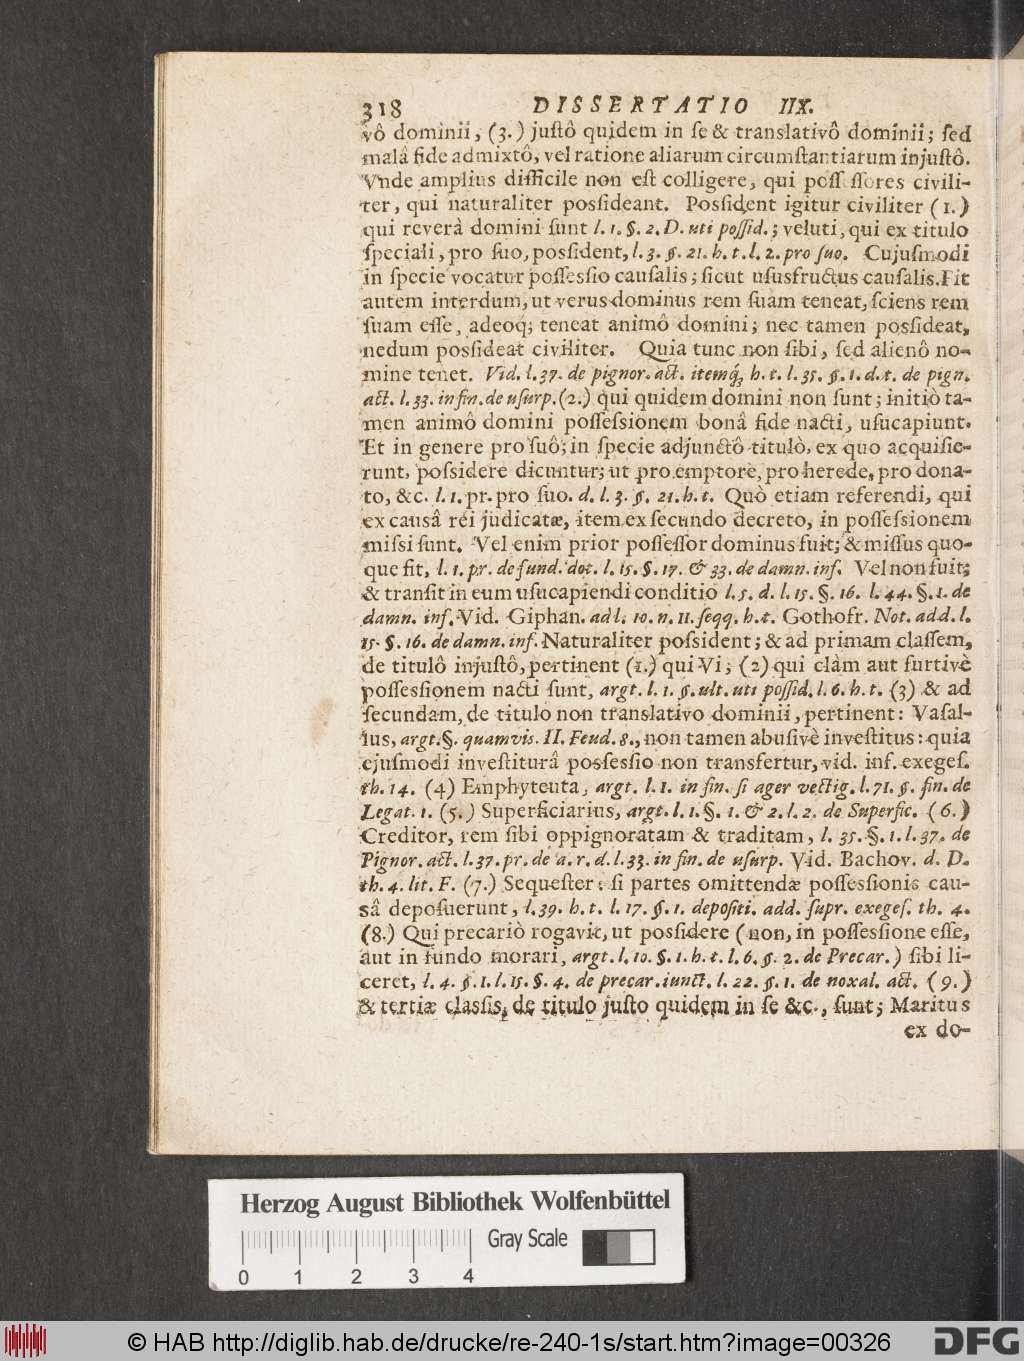 318 DISSERTATIO IIX.
vô dominii, (3.) juſtô quidem in ſe & translativô dominii; ſed
malâ fide admixtô, vel ratione aliarum circumſtantiarum injuſtô.
Vnde amplius difficile non eſt colligere, qui poſſeſſores civili-
ter, qui naturaliter possideant. Possident igitur civiliter (1.)
qui reverâ domini sunt l. 1. §. 2. D. uti poſſid.; veluti, qui ex titulo
ſpeciali, pro ſuo, possident, l. 3. §. 21. h. t. l. 2. pro ſuo. Cujuſmodi
in ſpecie vocatur poſſeſſio cauſalis; ſicut uſusfructus cauſalis. Fit
autem interdum, ut verus dominus rem ſuam teneat, ſciens rem
ſuam eſſe, adeoq; teneat animô domini; nec tamen possideat,
nedum possideat civiliter. Quia tunc non ſibi, ſed alienô no-
mine tenet. Vid. l. 37. de pignor. act. itemq́; h. t. l. 35. §. 1. d. t. de pign.
act. l. 33. in fin. de uſurp. (2.) qui quidem domini non ſunt; initiò ta-
men animô domini poſſeſsionem bonâ fide nacti, uſucapiunt.
Et in genere pro ſuô; in ſpecie adjunctô titulò, ex quo acquiſie-
runt, possidere dicuntur; ut pro emptore, pro herede, pro dona-
to, &c. l. 1. pr. pro ſuo. d. l. 3. §. 21. h. t. Quò etiam referendi, qui
ex causâ rei judicatæ, item ex ſecundo decreto, in poſſeſsionem
miſsi ſunt. Vel enim prior poſſeſſor dominus fuit; & miſſus quo-
que fit, l. 1. pr. de fund. dot. l. 15. §. 17. & 33. de damn. inf. Vel non fuit;
& tranſit in eum uſucapiendi conditio l. 5. d. l. 15. §. 16. l. 44. §. 1. de
damn. inf. Vid. Giphan. ad l. 10. n. 11. ſeqq. h. t. Gothofr. Not. add. l.
15. §. 16. de damn. inf. Naturaliter poſsident; & ad primam claſſem,
de titulô injuſtô, pertinent (1.) qui Vi; (2) qui clàm aut furtivè
poſſeſsionem nacti ſunt, argt. l. 1. §. ult. uti poſſid. l. 6. h. t. (3) & ad
ſecundam, de titulo non translativo dominii, pertinent: Vaſal-
lus, argt. §. quamvis. II. Feud. 8., non tamen abuſivè inveſtitus: quia
ejuſmodi inveſtiturâ poſseſsio non transfertur, vid. inf. exegeſ.
th. 14. (4) Emphyteuta, argt. l. 1. in fin. ſi ager vectig. l. 71. §. fin. de
Legat. 1. (5.) Superficiarius, argt. l. 1. §. 1. & 2. l. 2. de Superfic. (6.)
Creditor, rem ſibi oppignoratam & traditam, l. 35. §. 1. l. 37. de
Pignor. act. l. 37. pr. de a. r. d. l. 33. in fin. de uſurp. Vid. Bachov. d. D.
th. 4. lit. F. (7.) Sequeſter: ſi partes omittendæ poſſeſsionis cau-
sâ depoſuerunt, l. 39. h. t. l. 17. §. 1. depoſiti. add. ſupr. exegeſ. th. 4.
(8.) Qui precariò rogavit, ut possidere (non, in poſſeſsione eſſe,
aut in fundo morari, argt. l. 10. §. 1. h. t. l. 6. §. 2. de Precar.) ſibi li-
ceret, l. 4. §. 1. l. 15. §. 4. de precar. iunct. l. 22. §. 1. de noxal. act. (9.)
& tertiæ claſsis, de titulo juſto quidem in ſe &c., ſunt; Maritus
ex do-
Herzog August Bibliothek Wolfenbüttel
Gray Scale
0 1 2 3 4
© HAB http://diglib.hab.de/drucke/re-240-1s/start.htm?image=00326
DFG